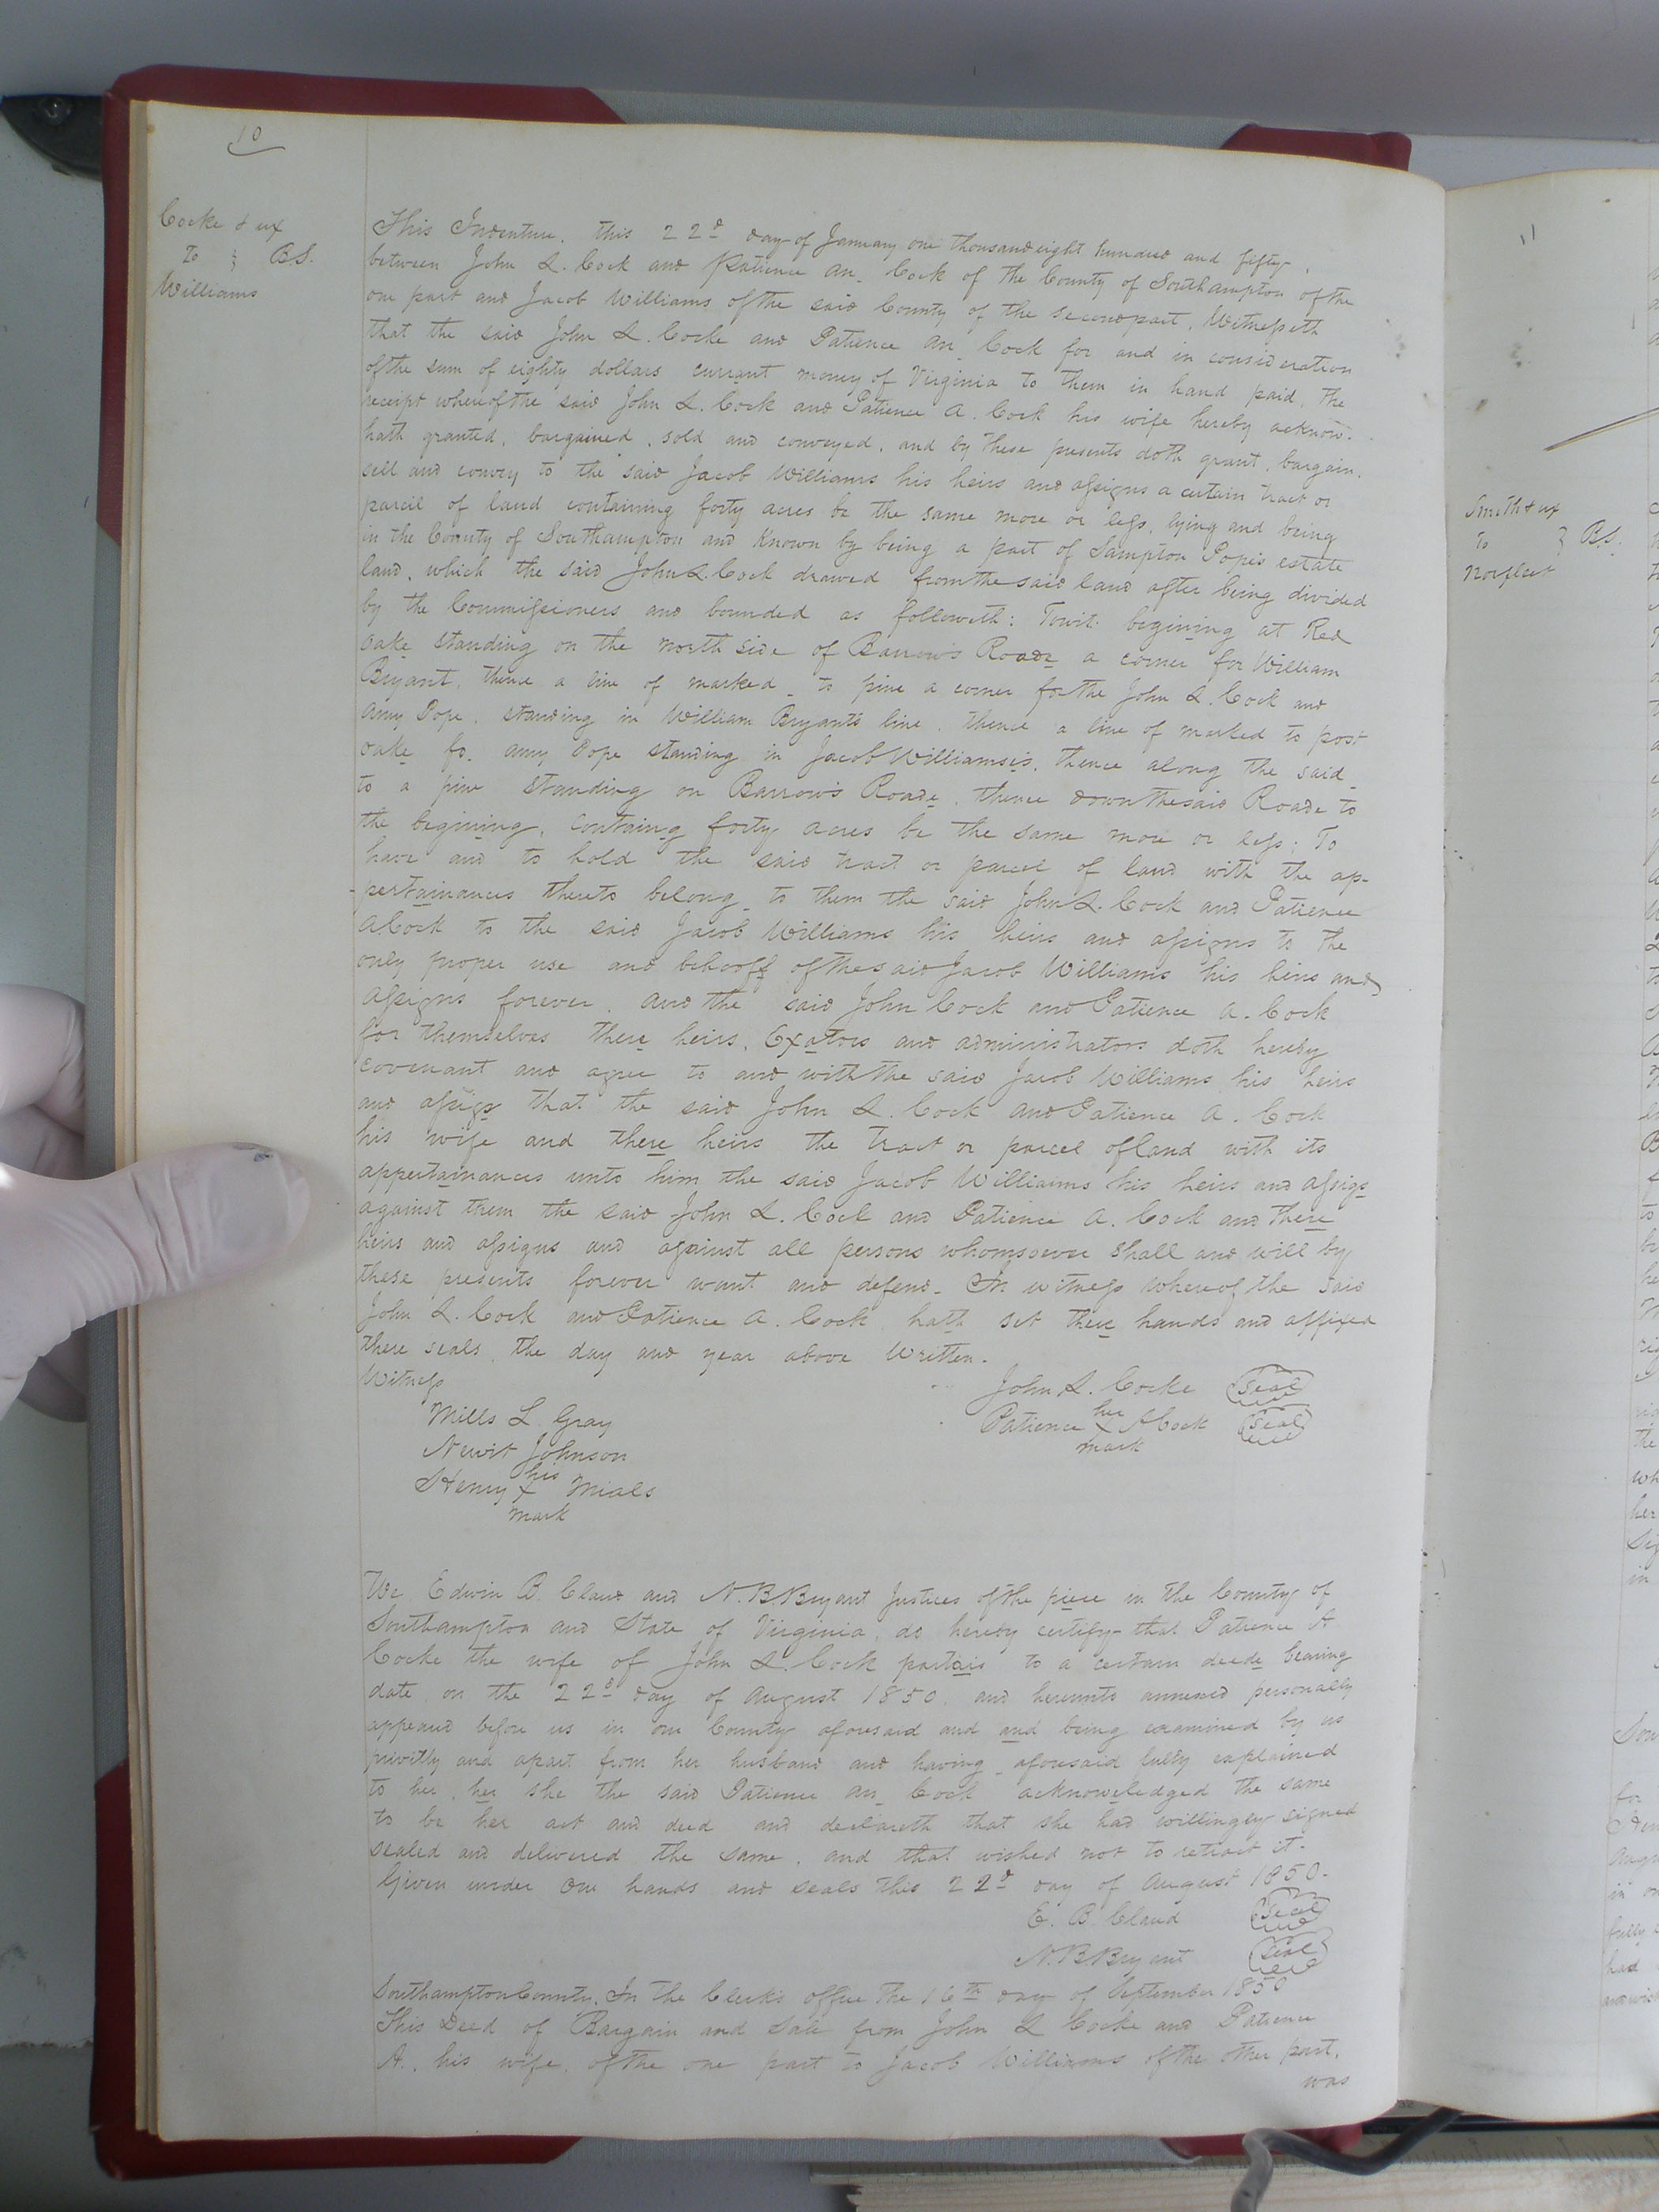 10
Cocke & ux
To } B.S.
Williams
This Indenture, this 22d day of January one thousand eight hundred and fifty,
between John L. Cock and Patience An. Cock of the County of Southampton of the
one part and Jacob Williams of the said County of the second part, Witnesseth
that the said John L. Cocke and Patience An. Cock for and in consideration
of the sum of eighty dollars currant money of Virginia to them in hand paid, the
receipt whereof the said John L. Cock and Patience A. Cock his wife hereby acknow-
hath granted, bargained, sold and conveyed, and by these presents doth grant, bargain,
sell and convey to the said Jacob Williams his heirs and assigns a certain tract or
parcil of land containing forty acres be the same more or less, lying and being
in the County of Southampton and Known by being a part of Sampton Pope's estate
land, which the said John L. Cock drawed from the said land after being divided
by the Commissioners and bounded as followeth: Towit: begining at Red
oake standing on the north side of Barrow's Roade a corner for William
Bryant, thence a line of marked _ to pine a corner for the John L. Cock and
Amy Pope, standing in William Bryant's line, thence a line of marked to post
oake fo. Amy Pope standing in Jacob Williamsis, thence along the said _
to a pine standing on Barrow's Roade, thence down the said Roade to
the begining, containg forty acres be the same more or less; To
have and to hold the said tract or parcel of land with the ap-
-pertainances thereto belong _ to them the said John L. Cock and Patience
A Cock to the said Jacob Williams his heirs and assigns to the
only proper use and behooff of the said Jacob Williams his heirs and
assigns forever. And the said John Cock and Patience A. Cock
for themselves there heirs, Exators and administrators doth hereby
covenant and agree to and with the said Jacob Williams his heirs
and assigs that the said John L. Cock and Patience A. Cock
his wife and there heirs the tract or parcel of land with its
appertainances unto him the said Jacob Williams his heirs and assigs
against them the said John L. Cock and Patience A. Cock and there
heirs and assigns and against all persons whomsoever shall and will by
these presents forever want and defend. In witness whereof the said
John L. Cock and Patience A. Cock hath set there hands and affixed
there seals, the day and year above written.
Witness
John L. Cocke Seal
Mills L. Gray
her
Patience X A Cock Seal
mark
Newit Johnson
his
Henry X Mials
mark
We Edwin B. Claud and N. B. Bryant Justices of the piece in the County of
Southampton and State of Virginia, do hereby certify that Patience A
Cocke the wife of John L. Cock partais to a certain deede bearing
date on the 22d day of August 1850, and hereunto annexed personally
appeared before us in our County aforesaid and and being examined by us
privitly and apart from her husband and having _ aforesaid fully explained
to her, her she the said Patience An. Cock acknoweledged the same
to be her act and deed and declareth that she had willingly signed
sealed and delivered the same, and that wished not to retract it.
Given under our hands and seals this 22d day of August 1850.
E. B. Claud Seal
N. B Bryant Seal
Southampton County, In the Clerk's office the 16th day of September 1850
This Deed of Bargain and Sale from John L Cocke and Patience
A. his wife, of the one part to Jacob Williams of the other part,
was
11
Smith & ux
To } B.S.
Norfleet